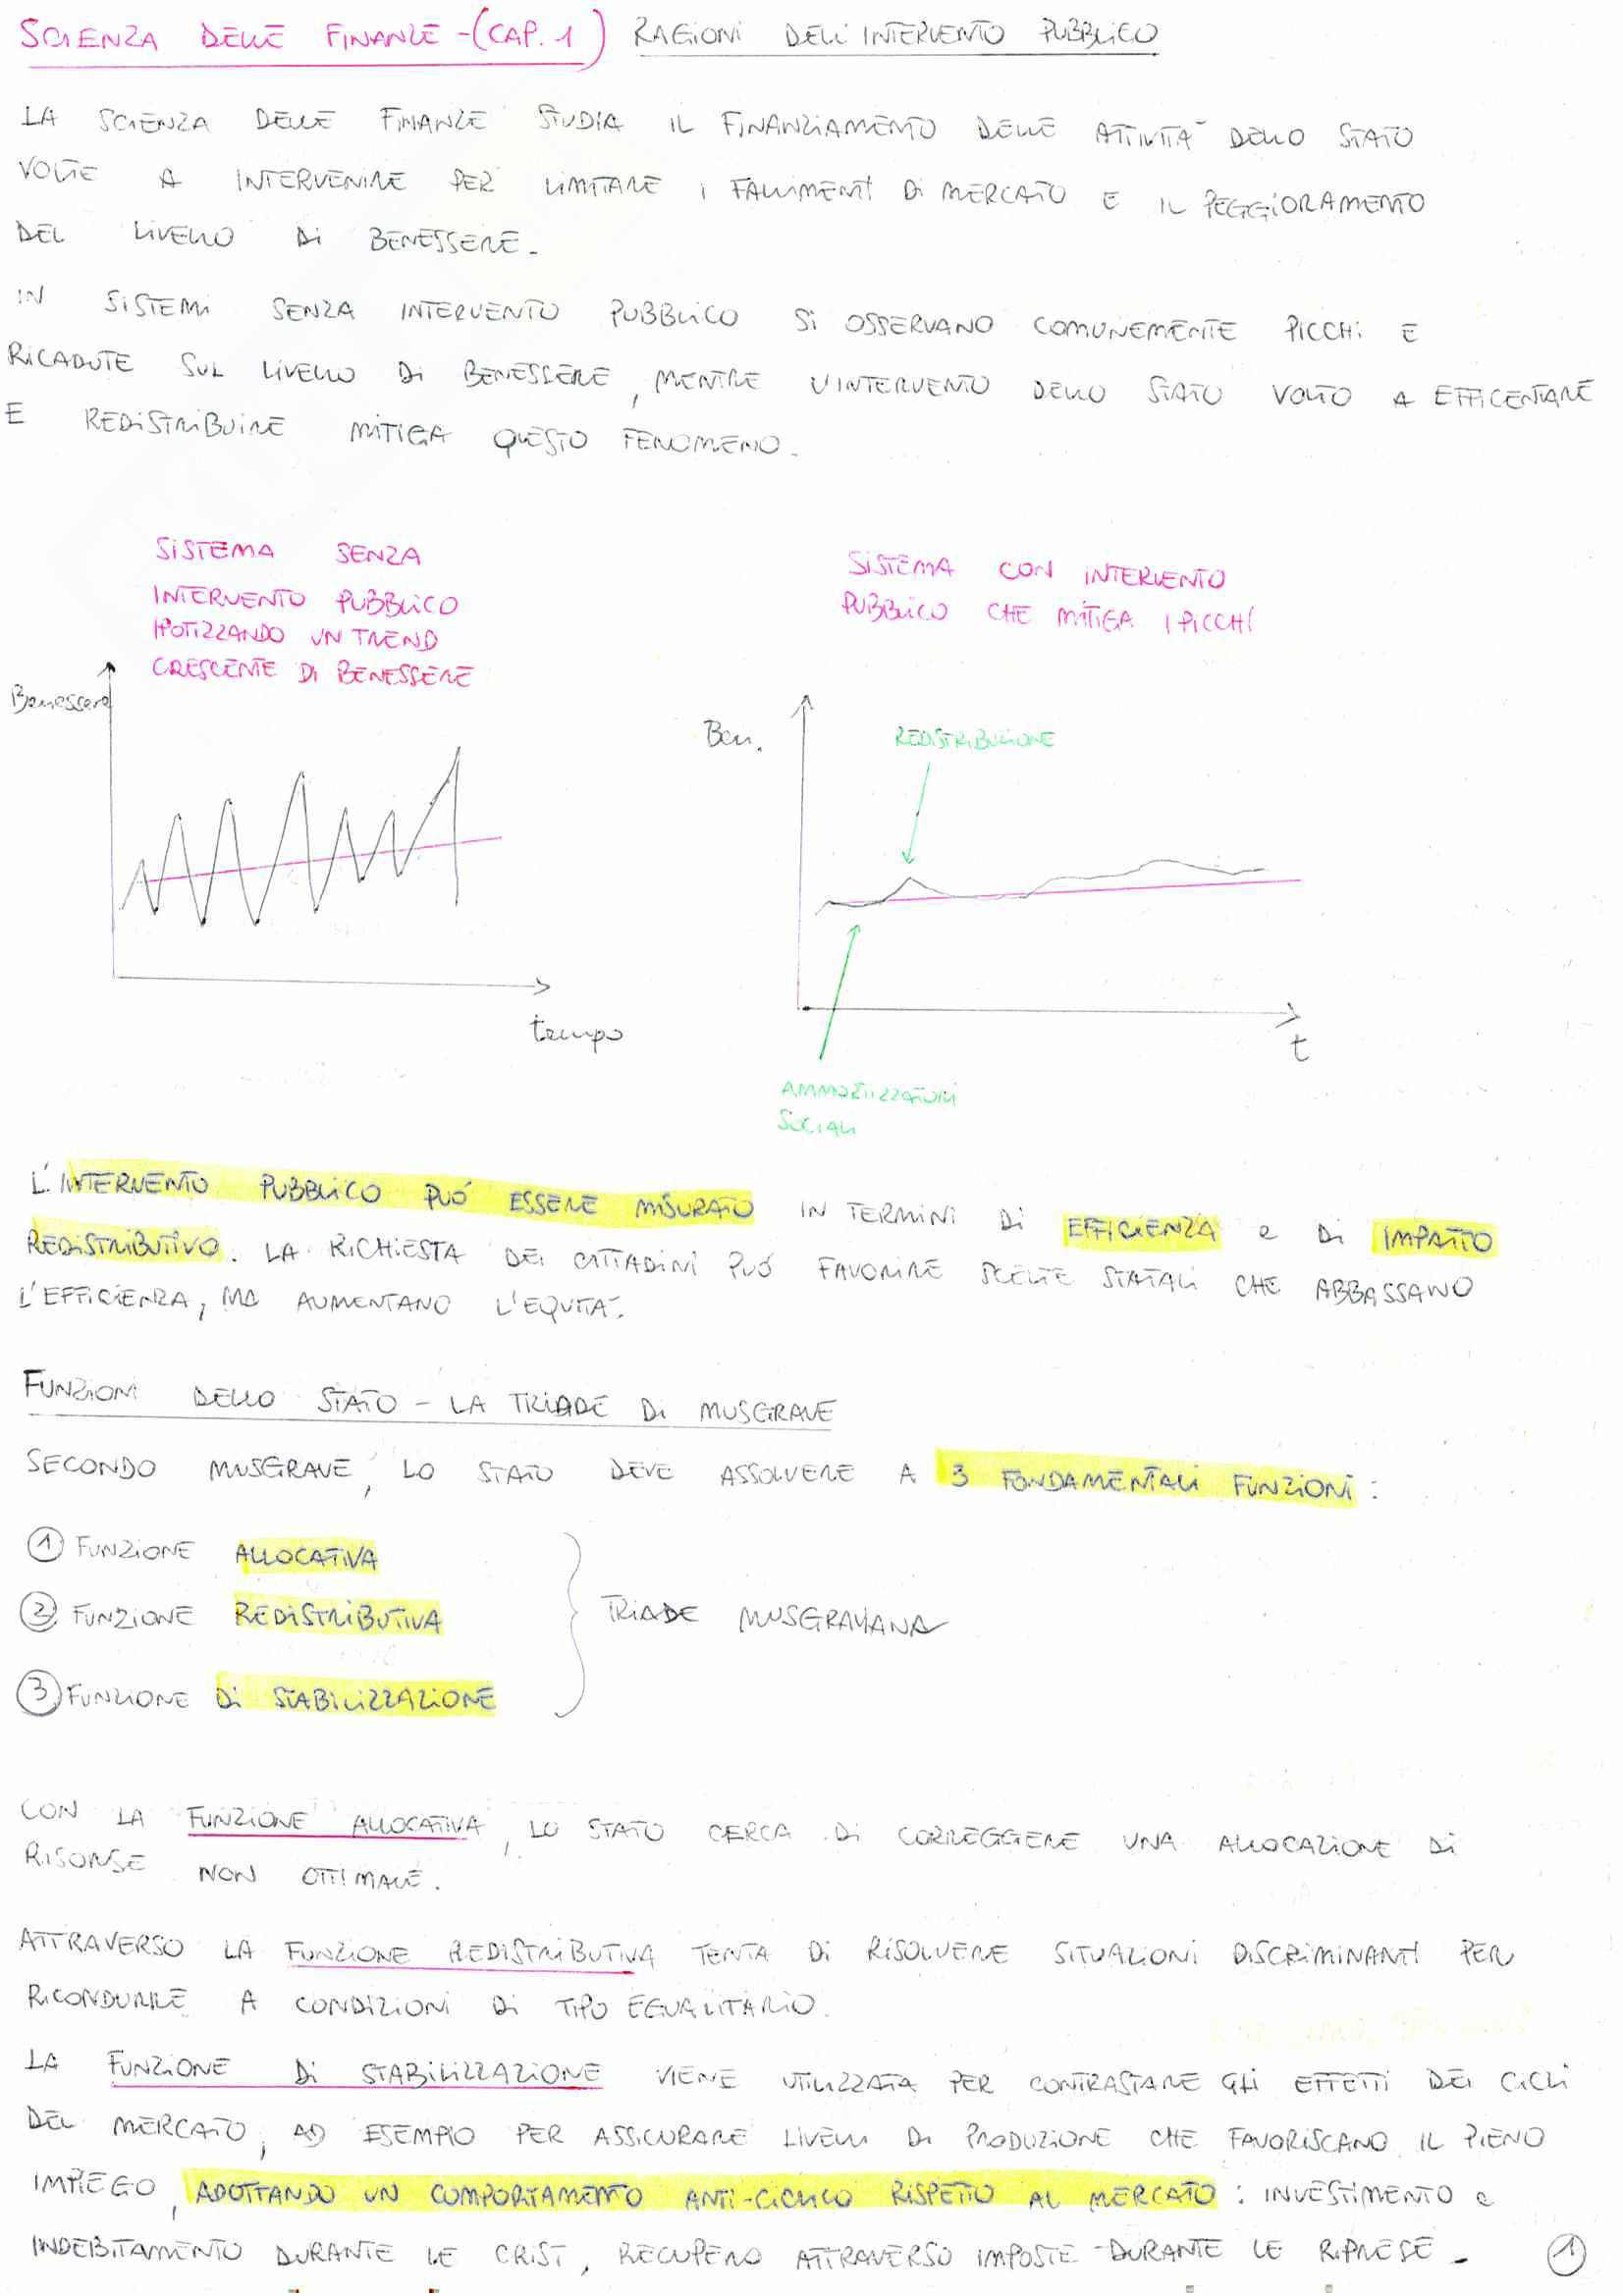 SCIENZA DELLE FINANZE - (CAP. 1) RAGIONI DELL'INTERVENTO PUBBLICO
LA SCIENZA DELLE FINANZE STUDIA IL FINANZIAMENTO DELLE ATTIVITÀ DELLO STATO
VOLTE A INTERVENIRE PER LIMITARE I FALLIMENTI DI MERCATO E IL PEGGIORAMENTO
DEL LIVELLO DI BENESSERE.
IN SISTEMI SENZA INTERVENTO PUBBLICO SI OSSERVANO COMUNEMENTE PICCHI E
RICADUTE SUL LIVELLO DI BENESSERE, MENTRE L'INTERVENTO DELLO STATO VOLTO A EFFICENTARE
E REDISTRIBUIRE MITIGA QUESTO FENOMENO.
SISTEMA SENZA
INTERVENTO PUBBLICO
IPOTIZZANDO UN TREND
CRESCENTE DI BENESSERE
Benessere
tempo
SISTEMA CON INTERVENTO
PUBBLICO CHE MITIGA I PICCHI
Ben.
REDISTRIBUZIONE
t
AMMORTIZZATORI
SOCIALI
L'INTERVENTO PUBBLICO PUÓ ESSERE MISURATO IN TERMINI DI EFFICIENZA e DI IMPATTO
REDISTRIBUTIVO. LA RICHIESTA DEI CITTADINI PUÓ FAVORIRE SCELTE STATALI CHE ABBASSANO
L'EFFICIENZA, MA AUMENTANO L'EQUITÀ.
FUNZIONI DELLO STATO - LA TRIADE DI MUSGRAVE
SECONDO MUSGRAVE, LO STATO DEVE ASSOLVERE A 3 FONDAMENTALI FUNZIONI:
① FUNZIONE ALLOCATIVA
② FUNZIONE REDISTRIBUTIVA
③ FUNZIONE DI STABILIZZAZIONE
TRIADE MUSGRAVIANA
CON LA FUNZIONE ALLOCATIVA, LO STATO CERCA DI CORREGGERE UNA ALLOCAZIONE DI
RISORSE NON OTTIMALE.
ATTRAVERSO LA FUNZIONE REDISTRIBUTIVA TENTA DI RISOLVERE SITUAZIONI DISCRIMINANTI PER
RICONDURLE A CONDIZIONI DI TIPO EGUALITARIO.
LA FUNZIONE DI STABILIZZAZIONE VIENE UTILIZZATA PER CONTRASTARE GLI EFFETTI DEI CICLI
DEL MERCATO, AD ESEMPIO PER ASSICURARE LIVELLI DI PRODUZIONE CHE FAVORISCANO IL PIENO
IMPIEGO, ADOTTANDO UN COMPORTAMENTO ANTI-CICLICO RISPETTO AL MERCATO: INVESTIMENTO e
INDEBITAMENTO DURANTE LE CRISI, RECUPERO ATTRAVERSO IMPOSTE DURANTE LE RIPRESE. ①